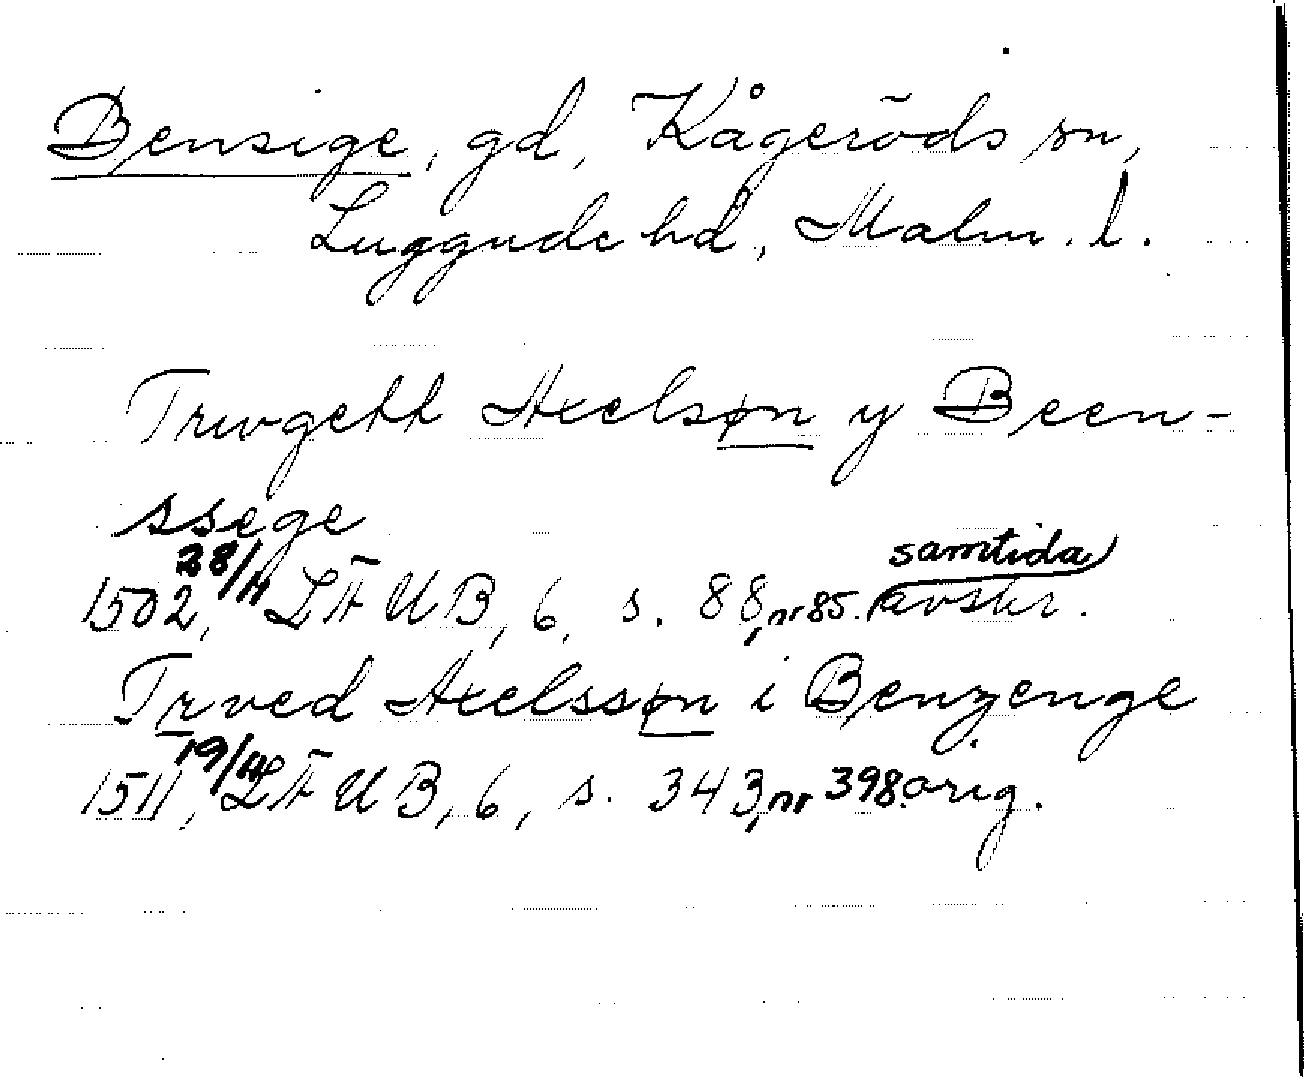 Bensige, gd, Kågeröds sn,
Luggude hd, Malm. l.
Truvgett Axelsøn y Been-
ssege
1502, 28/11 LÄUB, 6, s. 88, nr 85. samtida avskr.
Trved Axelssøn i Benzenge
1511, 19/4 LÄUB, 6, s. 343, nr 398. orig.